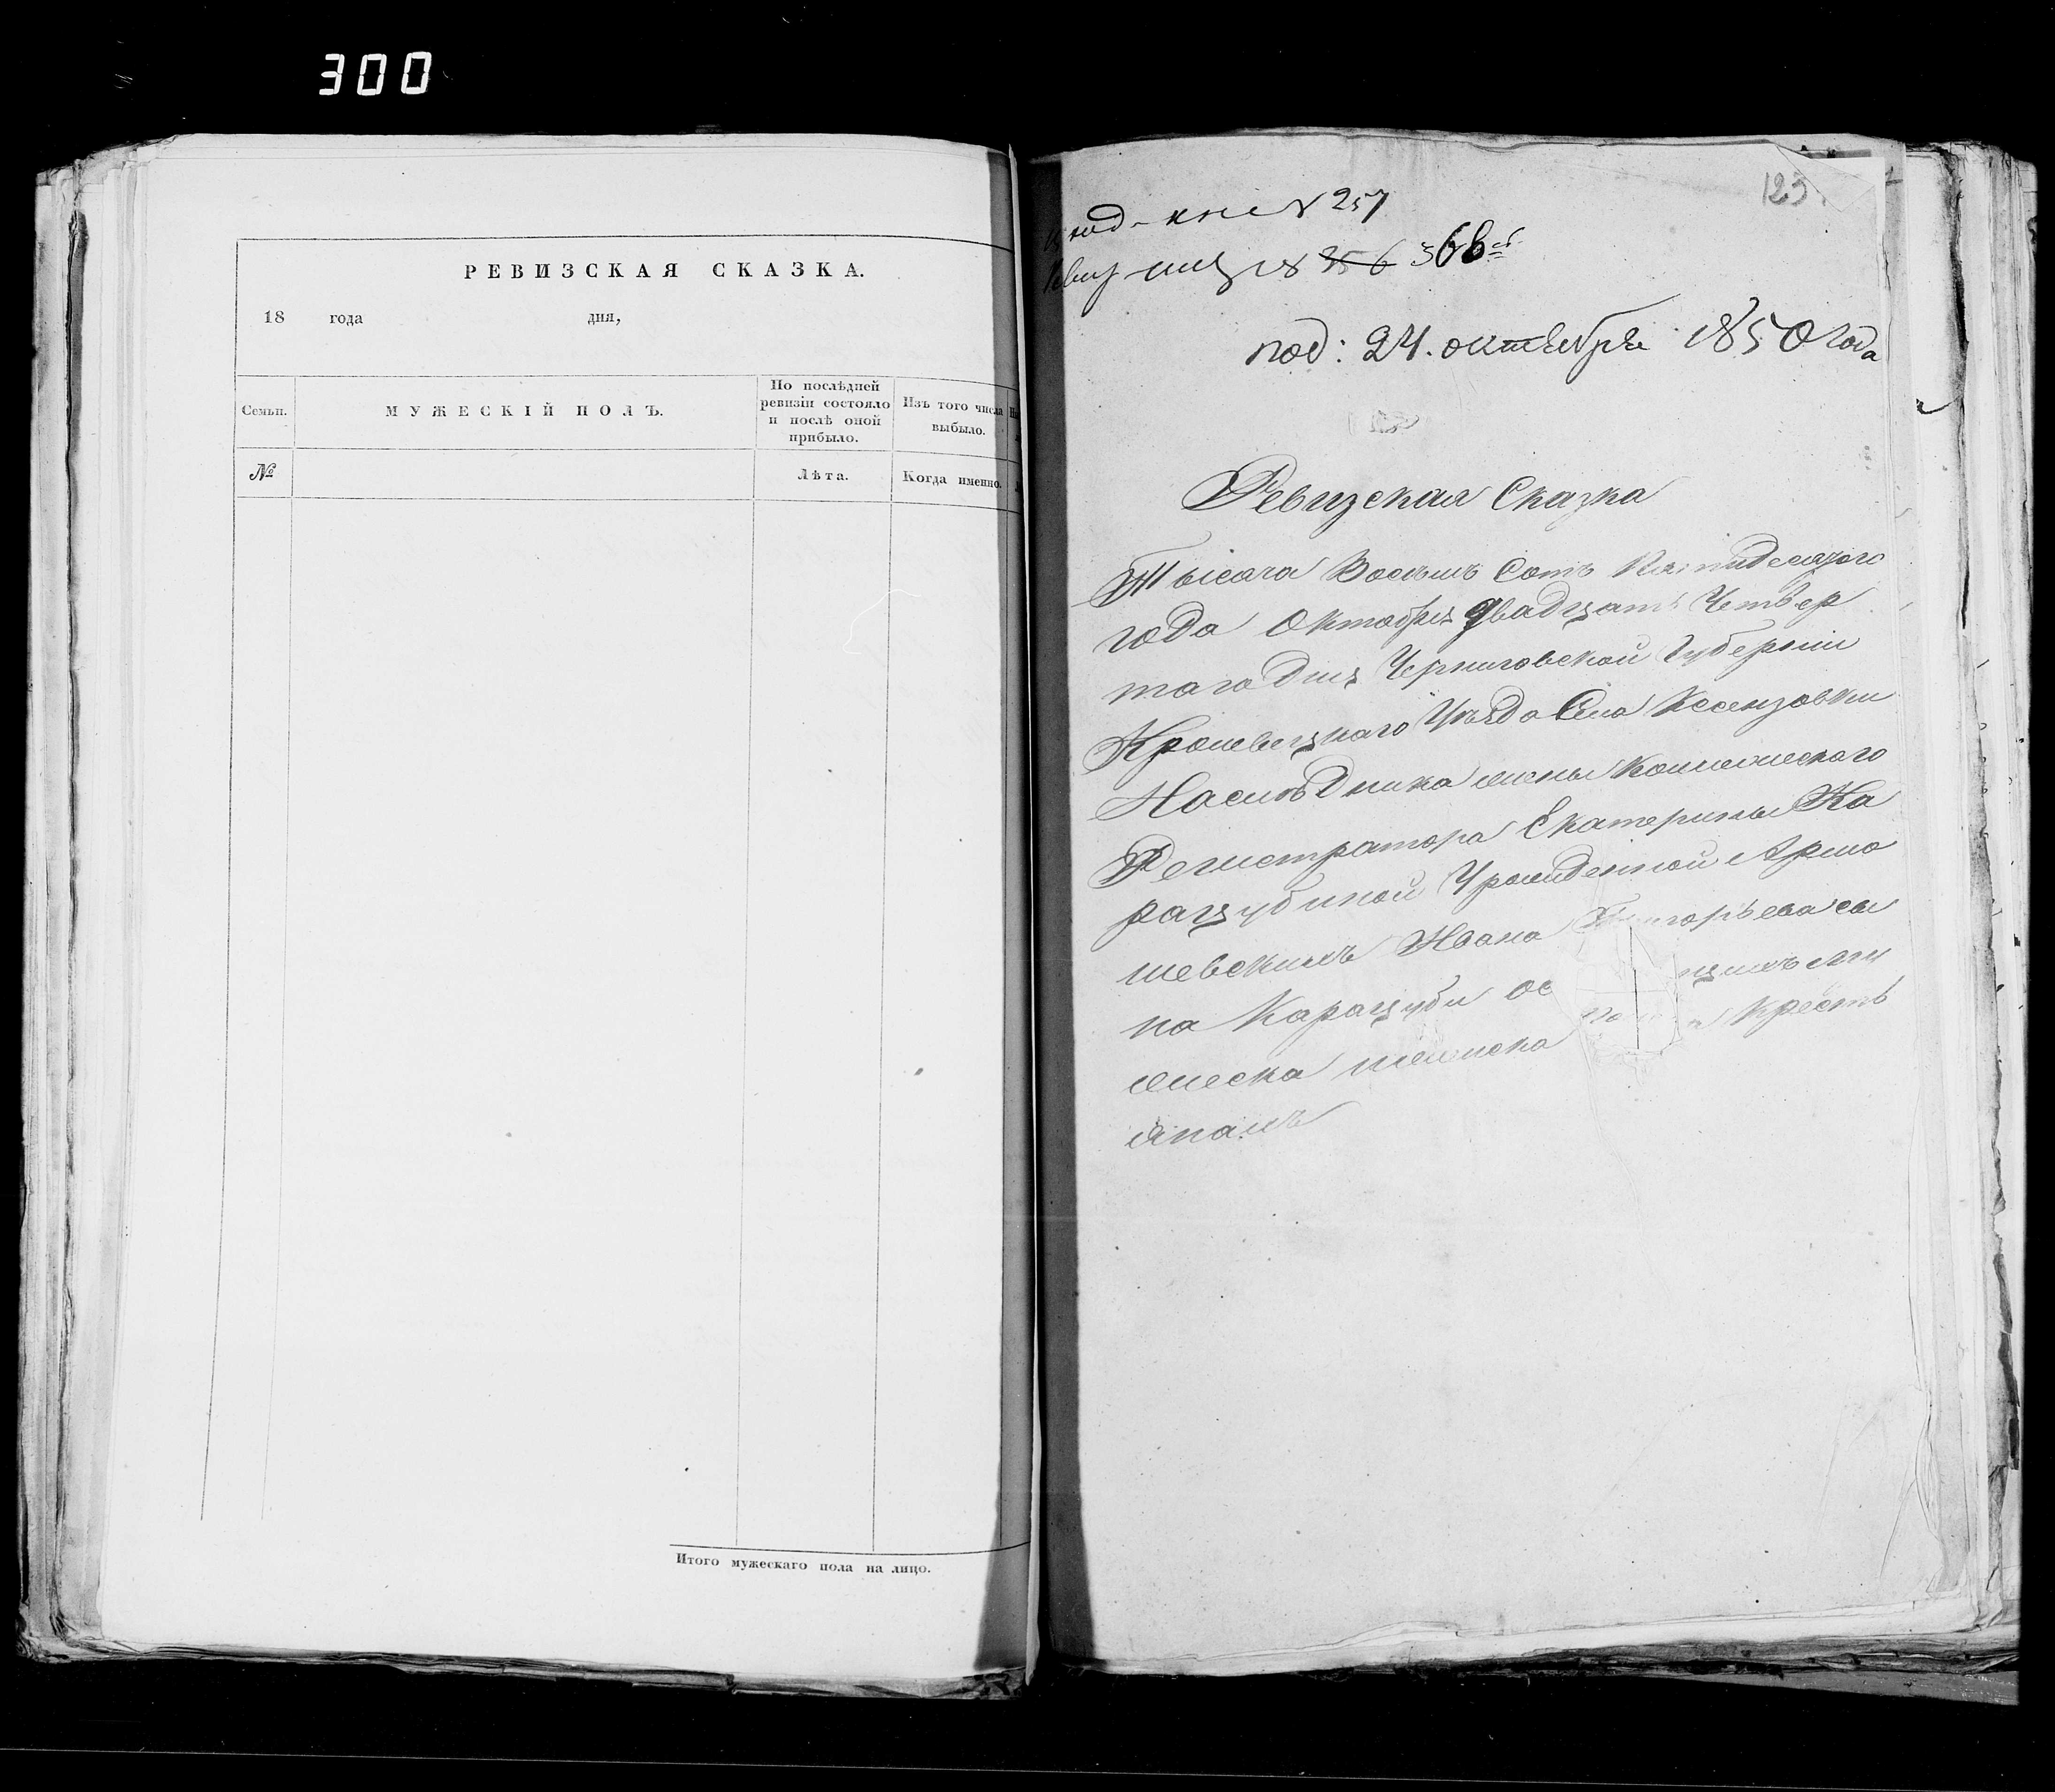 300
РЕВИЗСКАЯ СКАЗКА.
18 года дня,
Семьи.
МУЖЕСКІЙ ПОЛЪ.
По послѣдней
ревизіи состояло
и послѣ оной
прибыло.
Изъ того числа
выбыло.
№
Лѣта.
Когда именно.
Итого мужескаго пола на лицо.
123
№ 257
356 366
под: 24. октября 1850 года
Ревизская Сказка
Тысяча Восемь Сотъ Пятидесятого
года Октября двадцать Четвер
таго дня Черниговской Губерніи
Кролевецкаго Уѣзда Села Ксензовки
Наслѣдника жены Коллежскаго
Регистратора Екатерины Ка
рацубиной Урожденной Ярмо
шевскихъ Ивана Григорьева сы
на Карацуби ос
мужеска женска Кресть
янахъ